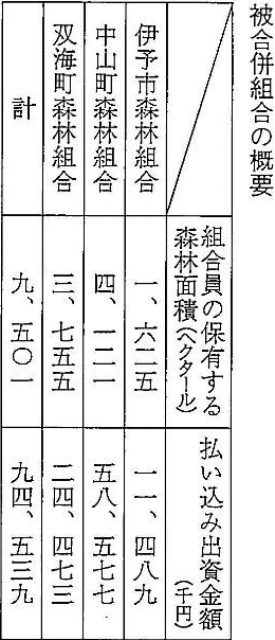 被合併組合の概要
組合員の保有する
森林面積(ヘクタール)
払い込み出資金額
(千円)
伊予市森林組合
一、六二五
一一、四八九
中山町森林組合
四、一二一
五八、五七七
双海町森林組合
三、七五五
二四、四七三
計
九、五〇一
九四、五三九